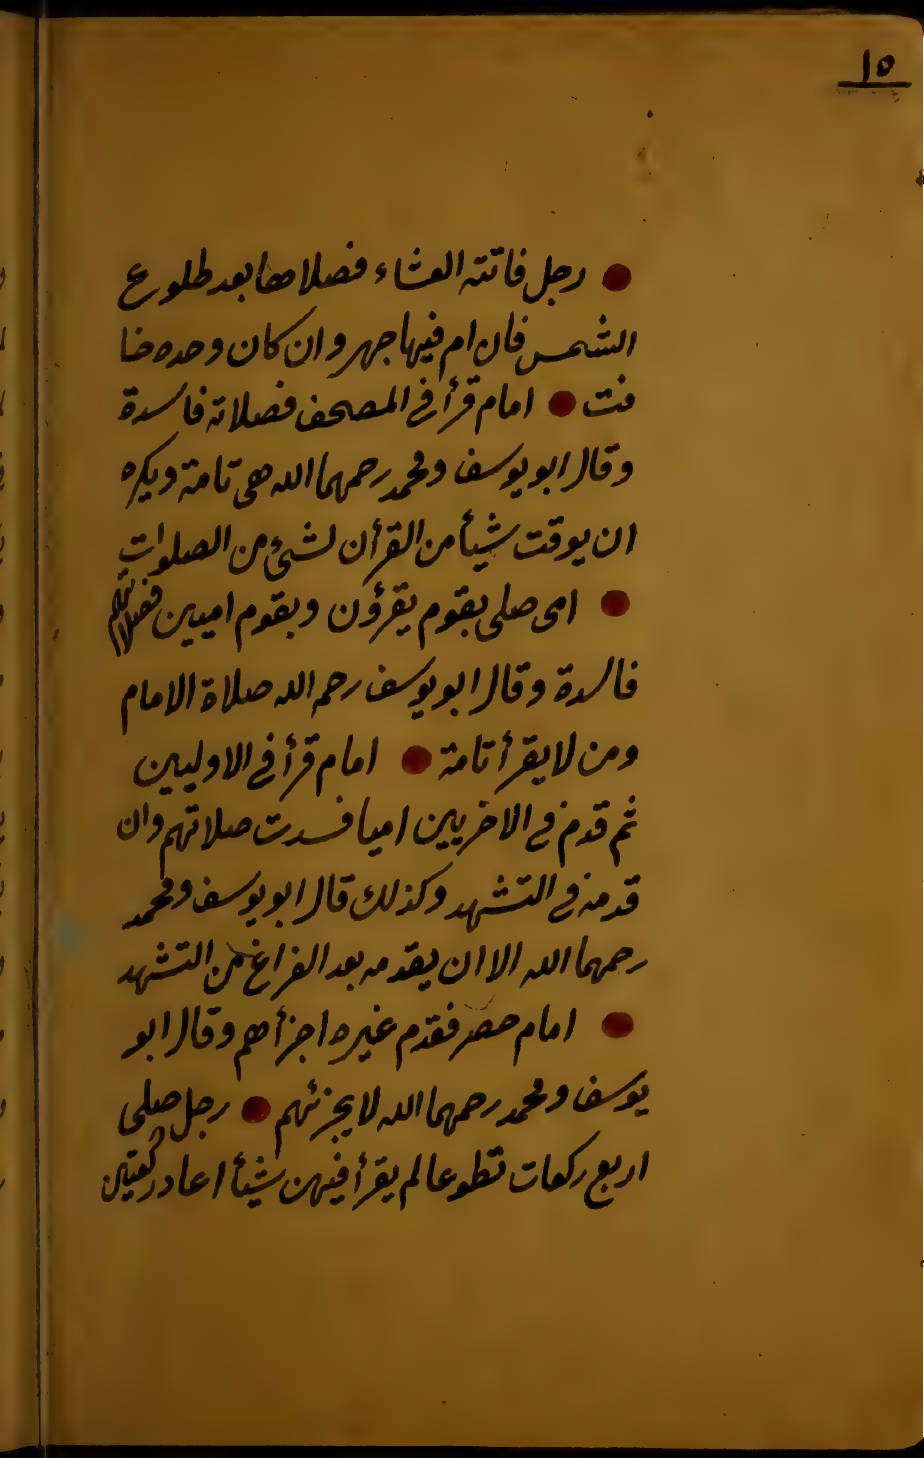 ١٥
رجل فاتته العشاء فصلاها بعد طلوع
الشمس فان ام فيها جهر وان كان وحده خا
فت امام قرأ في المصحف فصلاته فاسدة
وقال ابو يوسف ومحمد رحمهما الله هي تامة ويكره
ان يوقت شيأ من القرأن لشئ من الصلوات
امى صلى بقوم يقرؤن وبقوم اميين فصلاتهم
فاسدة وقال ابو يوسف رحمه الله صلاة الامام
ومن لا يقرأ تامة امام قرأ في الاوليين
ثم قدم في الاخريين اميا فسدت صلاتهم وان
قدمه في التشهد وكذلك قال ابو يوسف ومحمد
رحمهما الله الا ان يقدمه بعد الفراغ من التشهد
امام حصر فقدم غيره اجزأهم وقال ابو
يوسف ومحمد رحمهما الله لا يجزئهم رجل صلى
اربع ركعات تطوعا لم يقرأ فيهن شيأ اعاد ركعتين